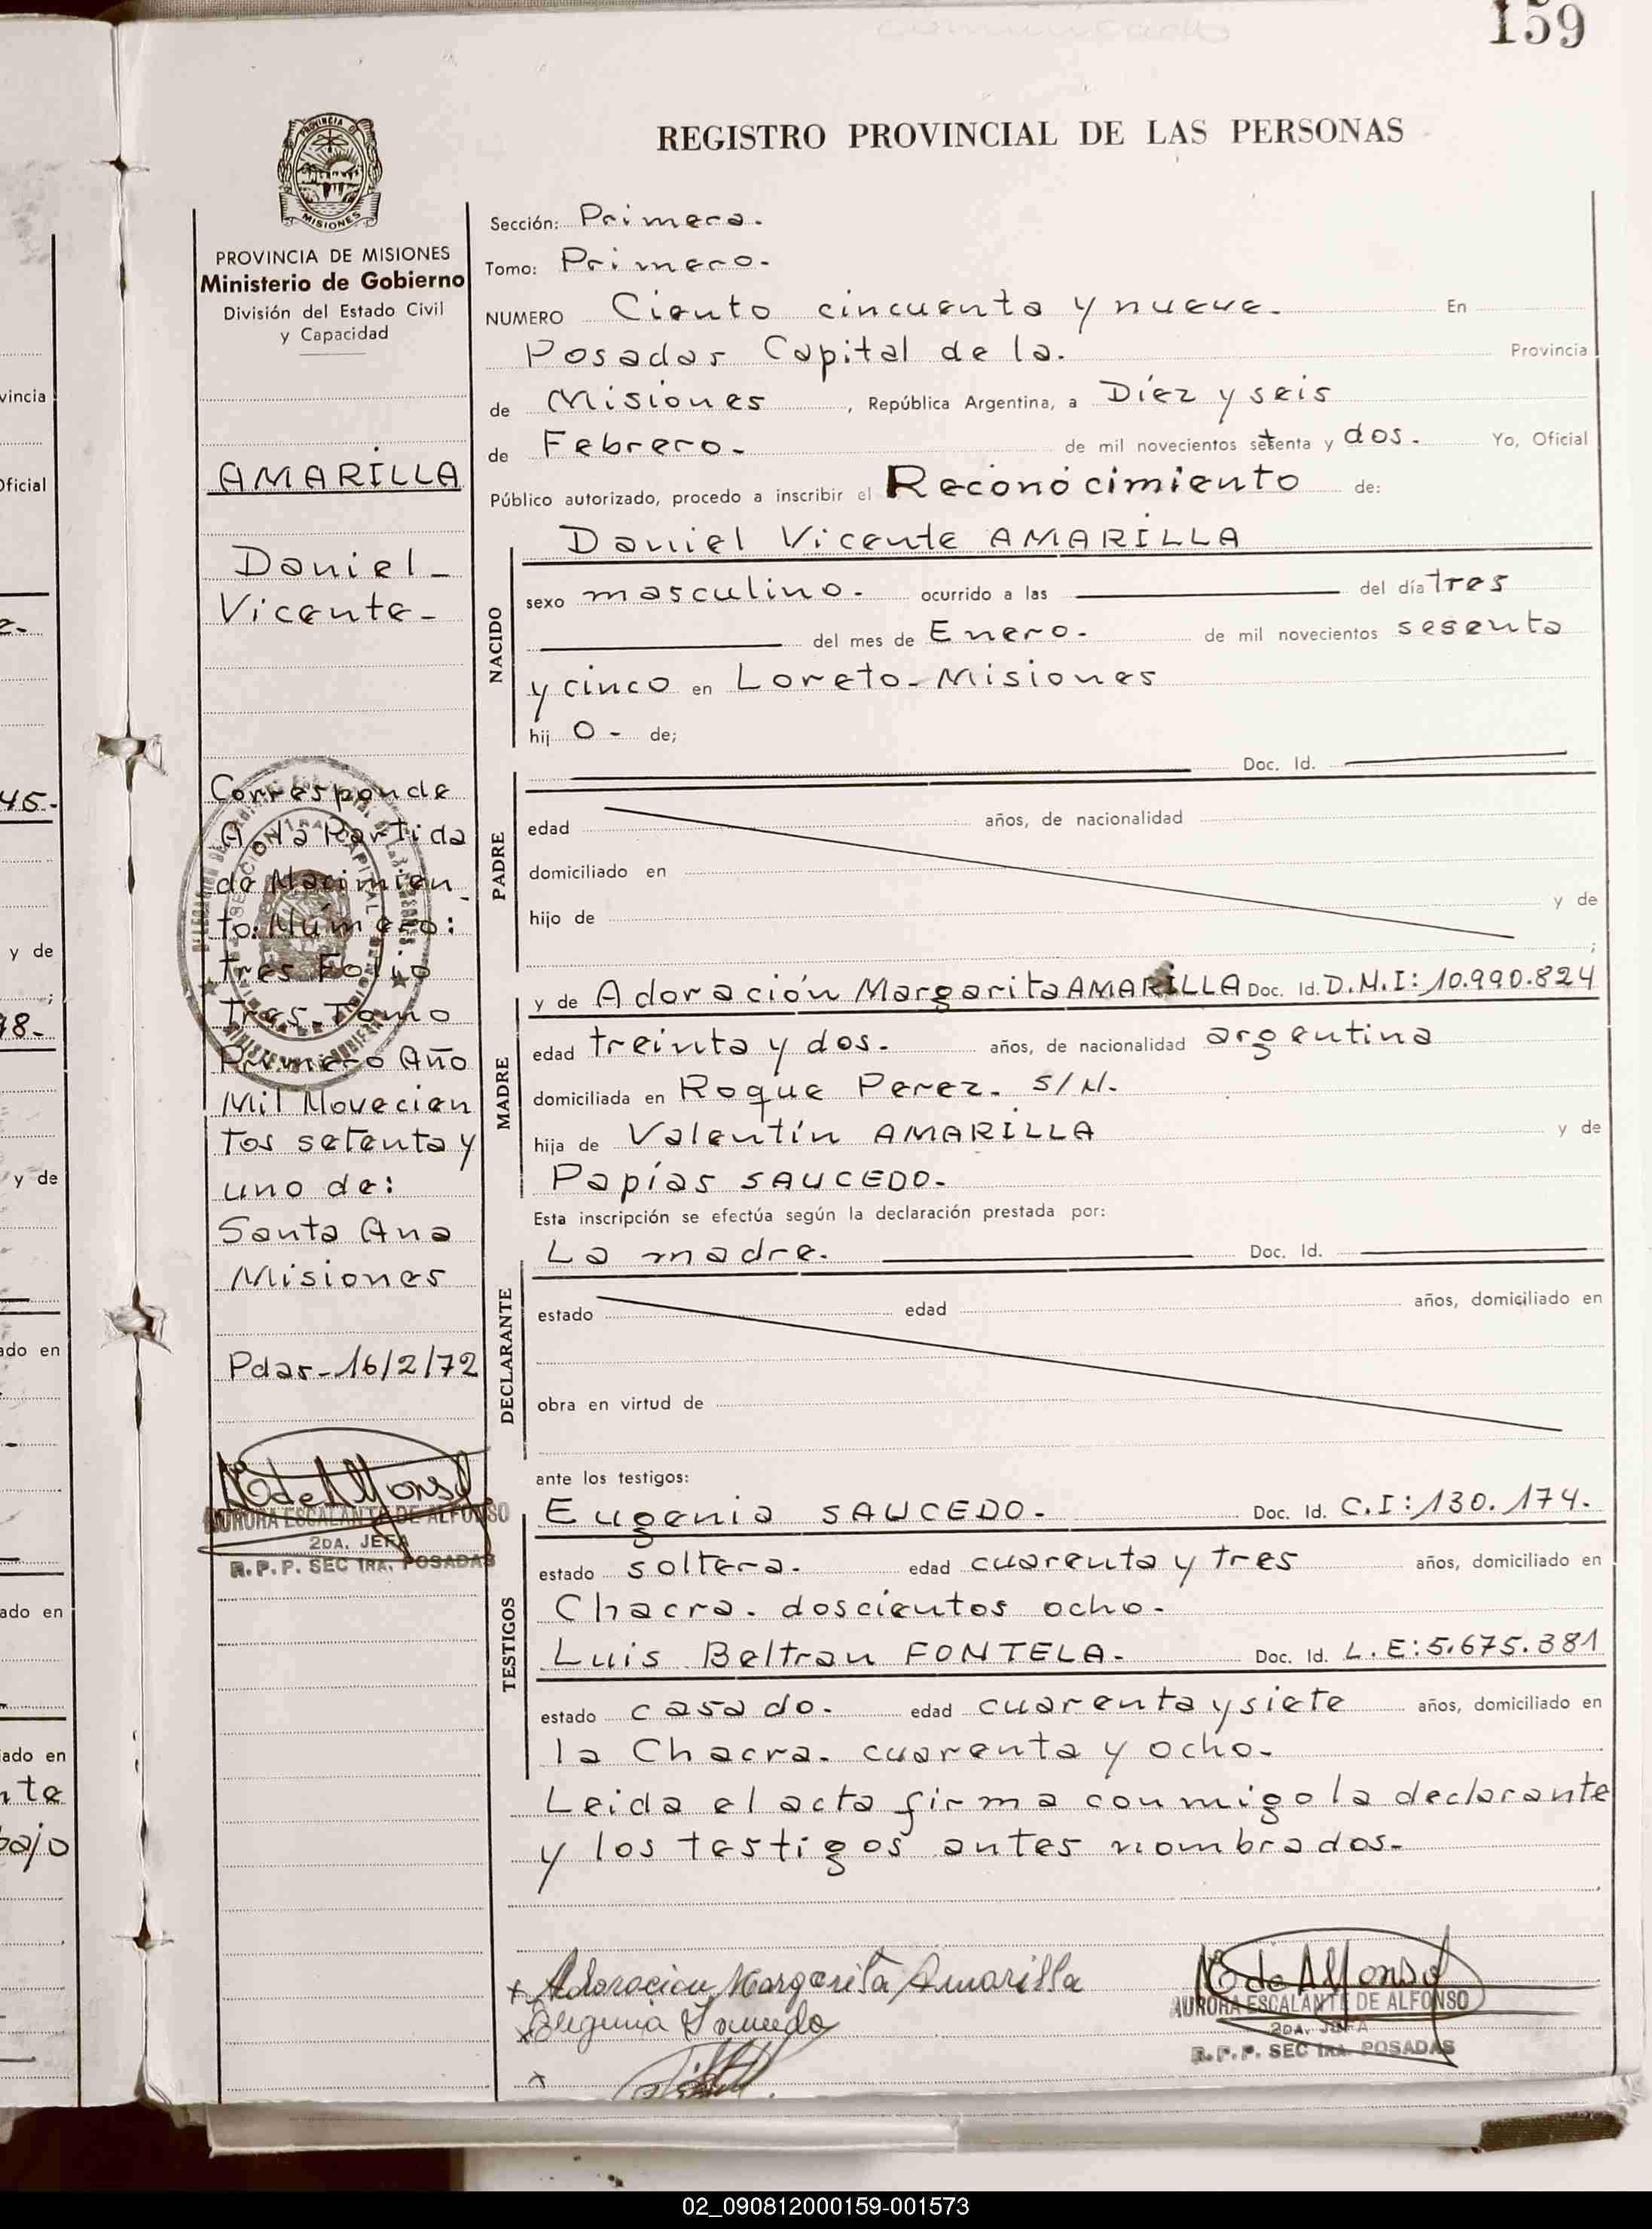 159
REGISTRO PROVINCIAL DE LAS PERSONAS
PROVINCIA DE MISIONES
Ministerio de Gobierno
División del Estado Civil
y Capacidad
AMARILLA
Daniel-
Vicente-
Corresponde
A la Partida
de Nacimien
to: Número:
tres Folio
Tres-Tomo
Primero Año
Mil Novecien
tos setenta y
uno de:
Santa Ana
Misiones
Pdas-16/2/72
AURORA ESCALANTE DE ALFONSO
2DA. JEFA
R.P.P. SEC 1RA. POSADAS
Sección: Primera.
Tomo: Primero.
NUMERO Ciento cincuenta y nueve. En
Posadas Capital de la. Provincia
de Misiones, República Argentina, a Díez y seis
de Febrero. de mil novecientos setenta y dos. Yo, Oficial
Público autorizado, procedo a inscribir el Reconocimiento de:
NACIDO
Daniel Vicente AMARILLA
sexo masculino. ocurrido a las del día tres
del mes de Enero. de mil novecientos sesenta
y cinco en Loreto-Misiones
hij o- de;
PADRE
Doc. Id.
edad años, de nacionalidad
domiciliado en
hijo de y de
;
MADRE
y de Adoración Margarita AMARILLA Doc. Id. D.N.I: 10.990.824
edad treinta y dos. años, de nacionalidad argentina
domiciliada en Roque Perez. S/N.
hija de Valentín AMARILLA y de
Papías SAUCEDO.
Esta inscripción se efectúa según la declaración prestada por:
DECLARANTE
La madre. Doc. Id.
estado edad años, domiciliado en
obra en virtud de
ante los testigos:
TESTIGOS
Eugenia SAUCEDO. Doc. Id. C.I: 130.174.
estado soltera. edad cuarenta y tres años, domiciliado en
Chacra. doscientos ocho.
Luis Beltran FONTELA. Doc. Id. L.E: 5.675.381
estado casado. edad cuarenta y siete años, domiciliado en
la Chacra. cuarenta y ocho.
Leida el acta firma conmigo la declarante
y los testigos antes nombrados.
x Adoracion Margarita Amarilla
x Eugenia Saucedo
x
AURORA ESCALANTE DE ALFONSO
2DA. JEFA
R.P.P. SEC 1RA. POSADAS
02_090812000159-001573